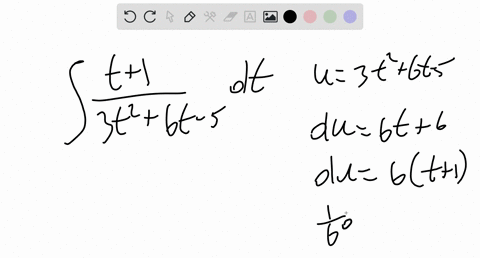 ∫ (t+1)/(3t²+6t-5) dt
u = 3t²+6t-5
du = 6t+6
du = 6(t+1)
1/6